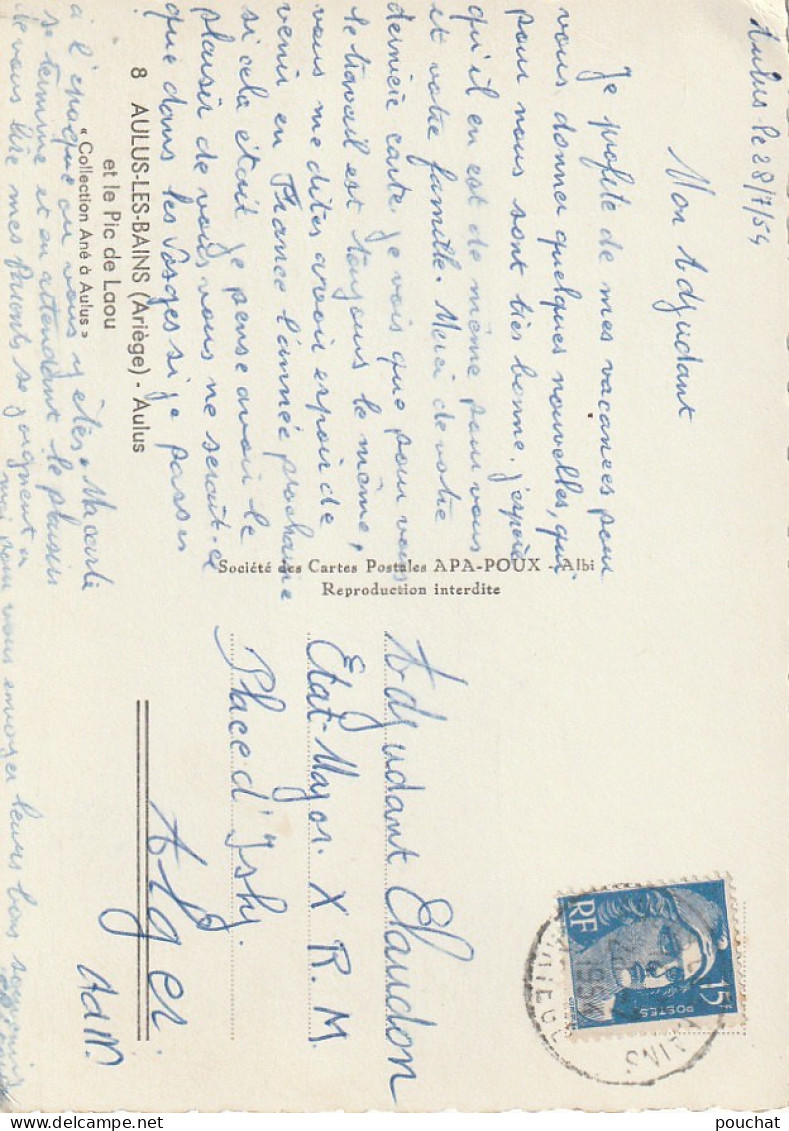 Aulus le 28/7/54
Mon Adjudant
Je profite de mes vacances pour
vous donner quelques nouvelles, qui
pour nous sont très bonne. j'espère
qu'il en est de même pour vous
et votre famille. Merci de votre
dernière carte. je vois que pour vous
le travail est toujours le même,
vous me dites avoir espoir de
venir en France l'année prochaine
si cela était je pense avoir le
plaisir de vous
que dans les Vosges si je passe
à l'époque ou vous y êtes. Ma carte
se termine et en attendant le plaisir
de vous lire mes Parents se joignent a
moi pour vous envoyer leurs bons souvenirs
8 AULUS-LES-BAINS (Ariège) - Aulus
et le Pic de Laou
« Collection Ané à Aulus »
Société des Cartes Postales APA-POUX - Albi
Reproduction interdite
Adjudant Claudon
Etat-Major. X R. M.
Place d'Isly.
Alger.
RF
15F
POSTES
pouchat